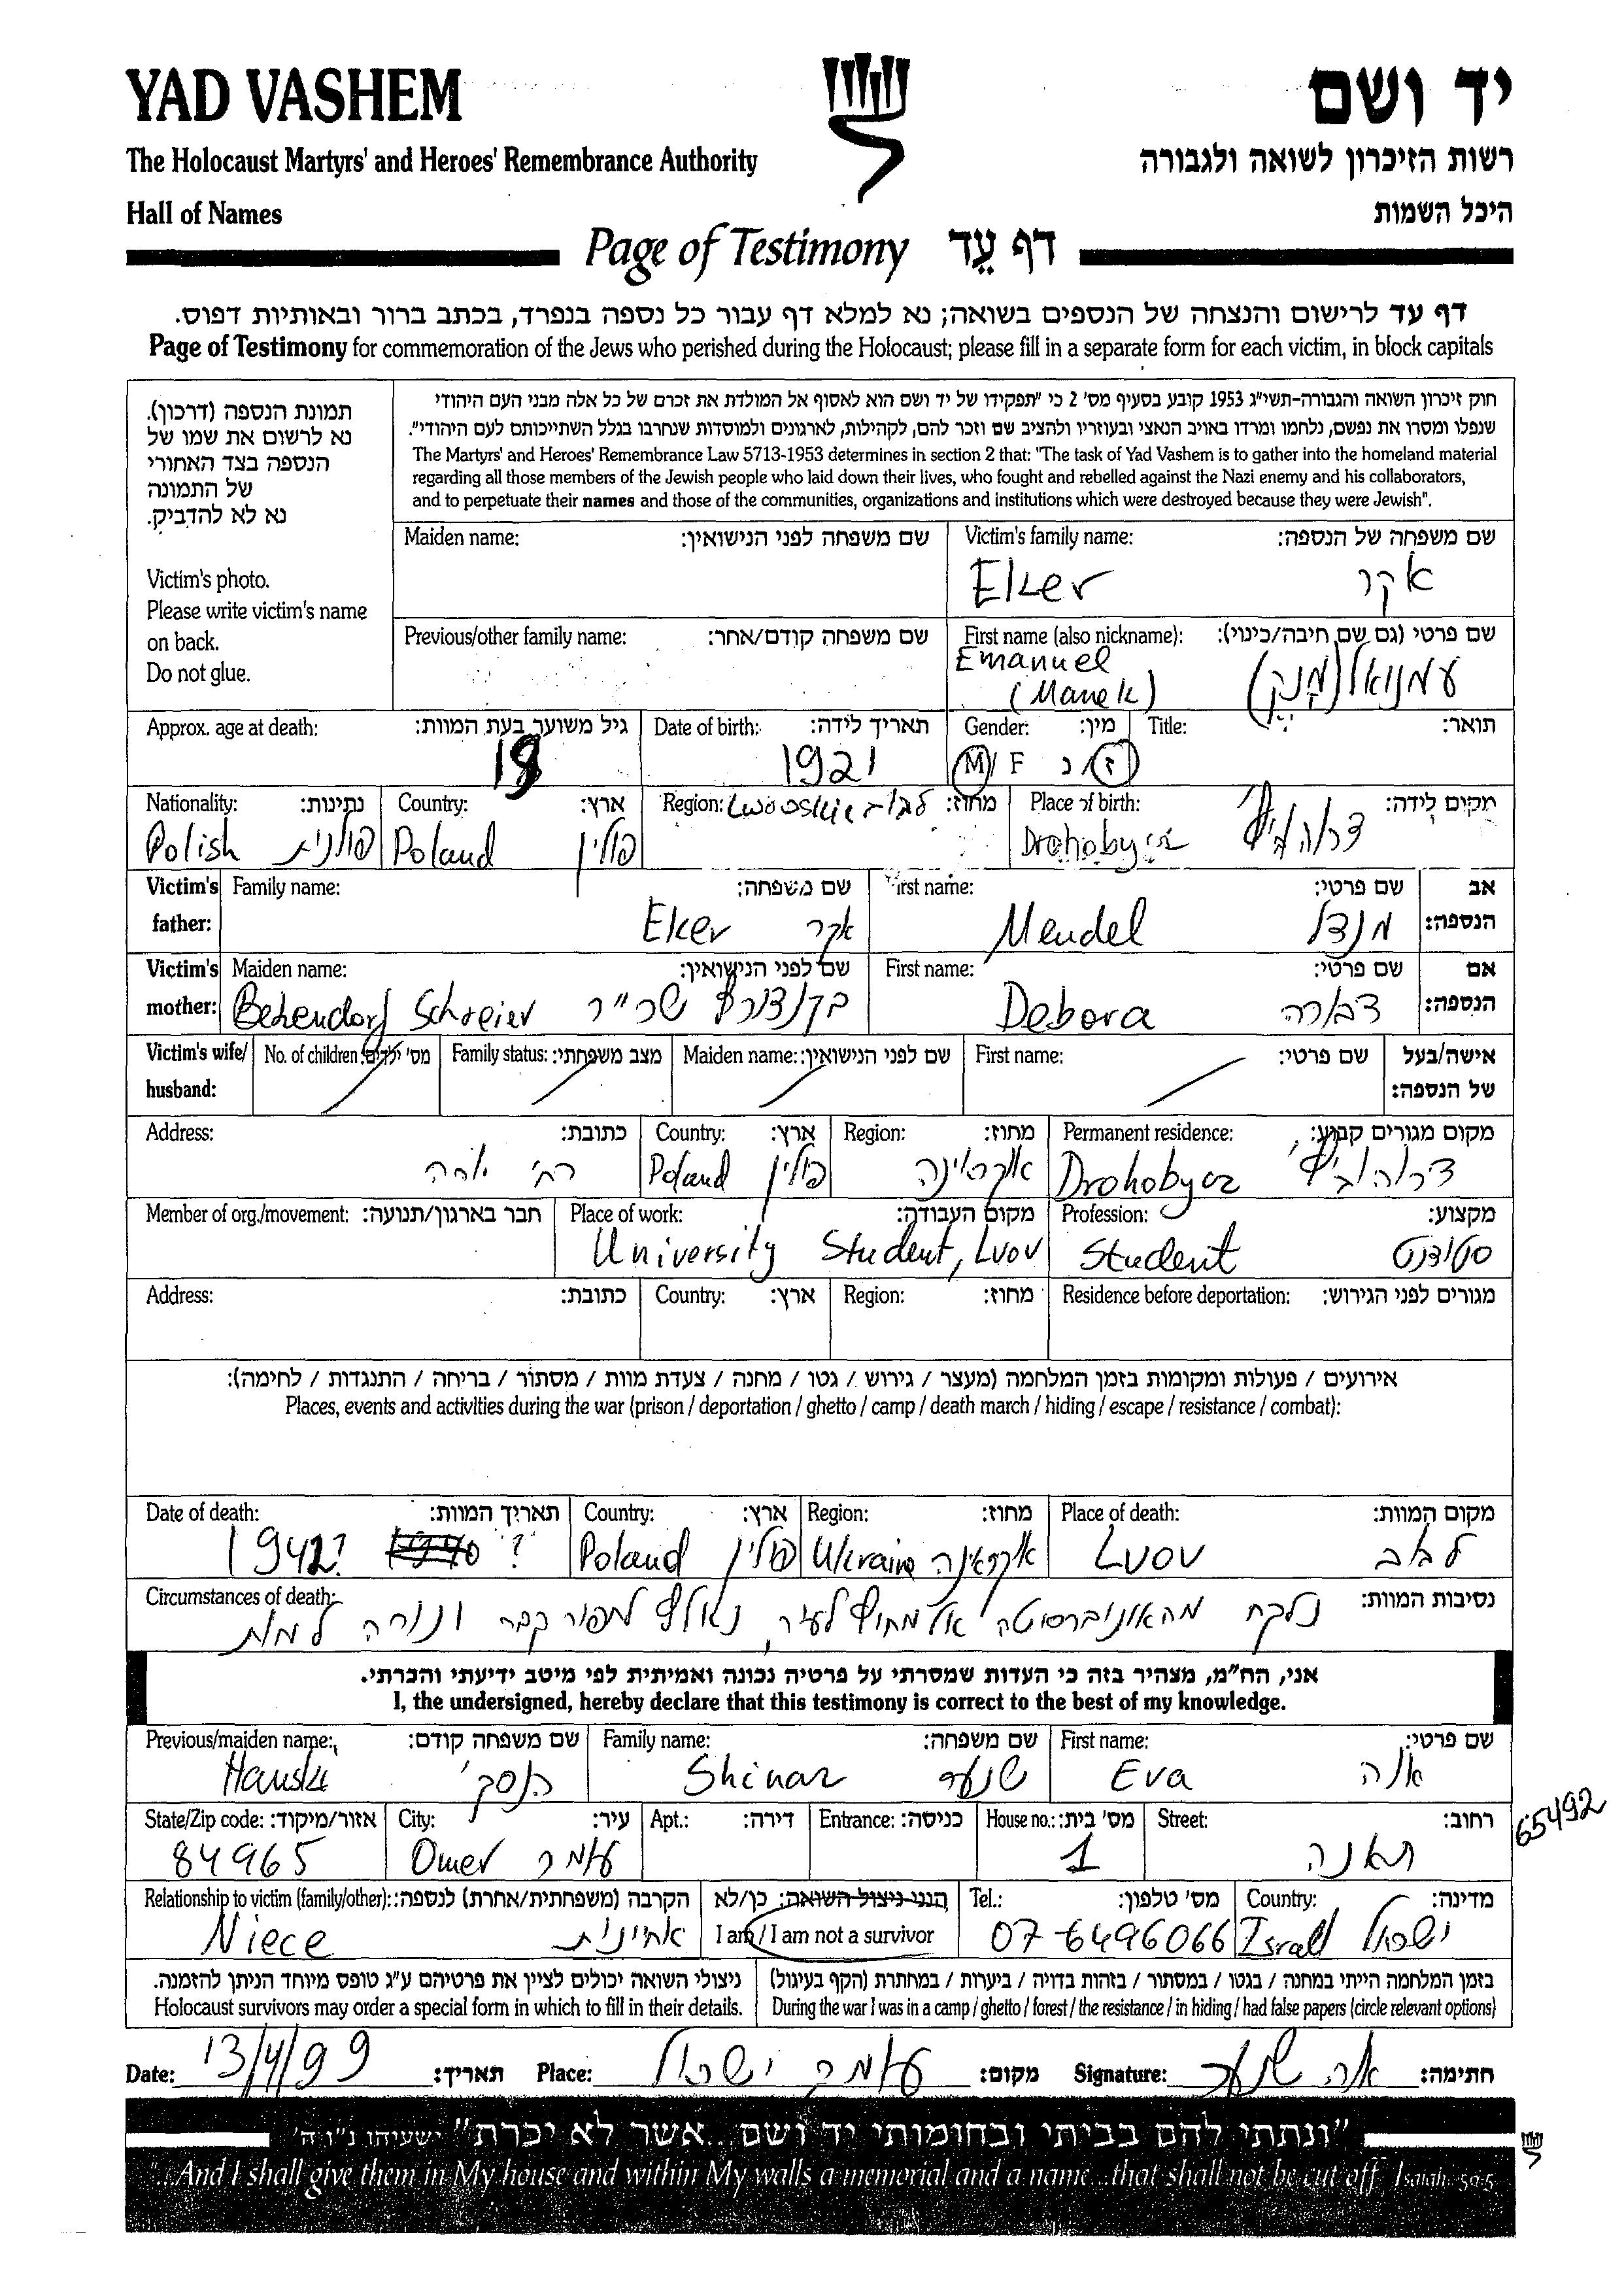 YAD VASHEM יד ושם
The Holocaust Martyrs' and Heroes' Remembrance Authority רשות הזיכרון לשואה ולגבורה
Hall of Names היכל השמות
Page of Testimony דף עֵד
דף עד לרישום והנצחה של הנספים בשואה; נא למלא דף עבור כל נספה בנפרד, בכתב ברור ובאותיות דפוס.
Page of Testimony for commemoration of the Jews who perished during the Holocaust; please fill in a separate form for each victim, in block capitals
תמונת הנספה (דרכון).
נא לרשום את שמו של
הנספה בצד האחורי
של התמונה
נא לא להדביק.
Victim's photo.
Please write victim's name
on back.
Do not glue.
חוק זיכרון השואה והגבורה-תשי"ג 1953 קובע בסעיף מס' 2 כי "תפקידו של יד ושם הוא לאסוף אל המולדת את זכרם של כל אלה מבני העם היהודי
שנפלו ומסרו את נפשם, נלחמו ומרדו באויב הנאצי ובעוזריו ולהציב שם וזכר להם, לקהילות, לארגונים ולמוסדות שנחרבו בגלל השתייכותם לעם היהודי".
The Martyrs' and Heroes' Remembrance Law 5713-1953 determines in section 2 that: "The task of Yad Vashem is to gather into the homeland material
regarding all those members of the Jewish people who laid down their lives, who fought and rebelled against the Nazi enemy and his collaborators,
and to perpetuate their names and those of the communities, organizations and institutions which were destroyed because they were Jewish".
Maiden name: שם משפחה לפני הנישואין: Victim's family name: שם משפחה של הנספה:
Eker אקר
Previous/other family name: שם משפחה קודם/אחר: First name (also nickname): שם פרטי (גם שם חיבה/כינוי):
Emanuel עמנואל (מנק)
(Manek)
Approx. age at death: גיל משוער בעת המוות: Date of birth: תאריך לידה: Gender: מין: Title: תואר:
19 1921 M/F ז/נ
Nationality: נתינות: Country: ארץ: Region: Lwowskie לבוב מחוז: Place of birth: מקום לידה:
Polish פולנית Poland פולין Drohobycz דרוהוביץ'
Victim's Family name: שם משפחה: First name: שם פרטי: אב
father: Eker אקר Mendel מנדל הנספה:
Victim's Maiden name: שם לפני הנישואין: First name: שם פרטי: אם
mother: Bekendorf Schreier בקנדורף שרייר Debora דבורה הנספה:
Victim's wife/ No. of children: מס' ילדים: Family status: מצב משפחתי: Maiden name: שם לפני הנישואין: First name: שם פרטי: אישה/בעל
husband: של הנספה:
Address: כתובת: Country: ארץ: Region: מחוז: Permanent residence: מקום מגורים קבוע:
רח' Poland פולין אוקראינה Drohobycz דרוהוביץ'
Member of org./movement: חבר בארגון/תנועה: Place of work: מקום העבודה: Profession: מקצוע:
University Student, Lvov Student סטודנט
Address: כתובת: Country: ארץ: Region: מחוז: Residence before deportation: מגורים לפני הגירוש:
אירועים / פעולות ומקומות בזמן המלחמה (מעצר / גירוש / גטו / מחנה / צעדת מוות / מסתור / בריחה / התנגדות / לחימה):
Places, events and activities during the war (prison / deportation / ghetto / camp / death march / hiding / escape / resistance / combat):
Date of death: תאריך המוות: Country: ארץ: Region: מחוז: Place of death: מקום המוות:
1942? 1940 ? Poland פולין Ukraine אוקראינה Lvov לבוב
Circumstances of death: נסיבות המוות:
נלקח מהאוניברסיטה אל מחוץ לעיר, נאלץ לחפור קברו ונורה למוות
אני, הח"מ, מצהיר בזה כי העדות שמסרתי על פרטיה נכונה ואמיתית לפי מיטב ידיעתי והכרתי.
I, the undersigned, hereby declare that this testimony is correct to the best of my knowledge.
Previous/maiden name: שם משפחה קודם: Family name: שם משפחה: First name: שם פרטי:
Hauski הנסקי Shinar שנער Eva אוה
State/Zip code: אזור/מיקוד: City: עיר: Apt.: דירה: Entrance: כניסה: House no.: מס' בית: Street: רחוב:
84965 Omer עומר 1 תאנה
65492
Relationship to victim (family/other): הקרבה (משפחתית/אחרת) לנספה: הנני ניצול השואה: כן/לא Tel.: מס' טלפון: Country: מדינה:
Niece אחיינית I am / I am not a survivor 07-6496066 Israel ישראל
ניצולי השואה יכולים לציין את פרטיהם ע"ג טופס מיוחד הניתן להזמנה. בזמן המלחמה הייתי במחנה / בגטו / במסתור / בזהות בדויה / ביערות / במחתרת (הקף בעיגול)
Holocaust survivors may order a special form in which to fill in their details. During the war I was in a camp / ghetto / forest / the resistance / in hiding / had false papers (circle relevant options)
Date: 13/4/99 תאריך: Place: עומר ישראל מקום: Signature: אוה שנער חתימה:
"ונתתי להם בביתי ובחומותי יד ושם...אשר לא יכרת" ישעיהו נ"ו ה'
"...And I shall give them in My house and within My walls a memorial and a name...that shall not be cut off. Isaiah, 56:5